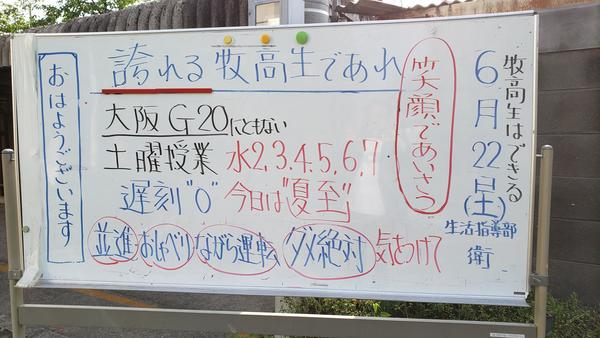 牧高生はできる
6月22日(土)
生活指導部
衛
笑顔であいさつ
誇れる牧高生であれ
大阪G20にともない
土曜授業 水2,3,4,5,6,7
遅刻"0" 今日は"夏至"
並進 おしゃべり ながら運転 ダメ絶対 気をつけて
おはようございます